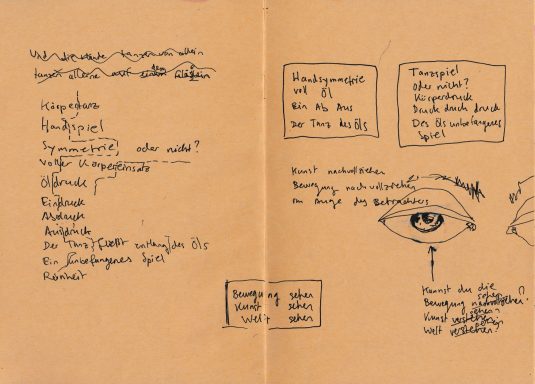 Und die Hände tanzen von allein
tanzen alleine auf dem
Körpertanz
Handspiel
Symmetrie, oder nicht?
Voller Körpereinsatz
Öldruck
Eindruck
Abdruck
Ausdruck
Der Tanz, fließt entlang des Öls
Ein unbefangenes Spiel
Reinheit
Handsymmetrie
voll Öl
Ein Ab Aus
Der Tanz des Öls
Tanzspiel
oder nicht?
Körperdruck
Druck druck druck
Des Öls unbefangenes
Spiel
Kunst nachvollziehen
Bewegung nachvollziehen
im Auge des Betrachters
Bewegung sehen
Kunst sehen
Welt sehen
Kannst du die
Bewegung sehen?
Kunst sehen
Welt verstehen?